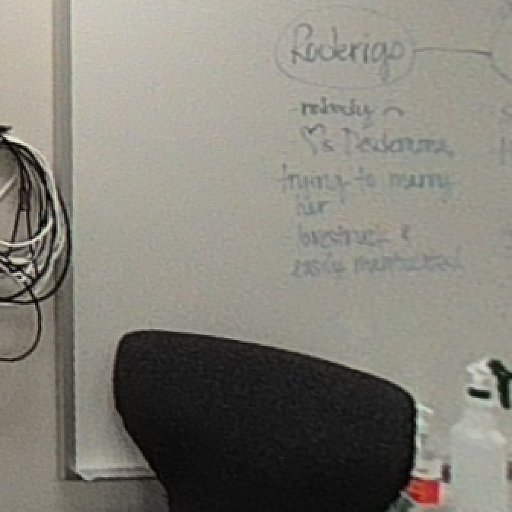 Roderigo
♥s Desdemona
trying to marry
her
lovestruck &
easily manipulated